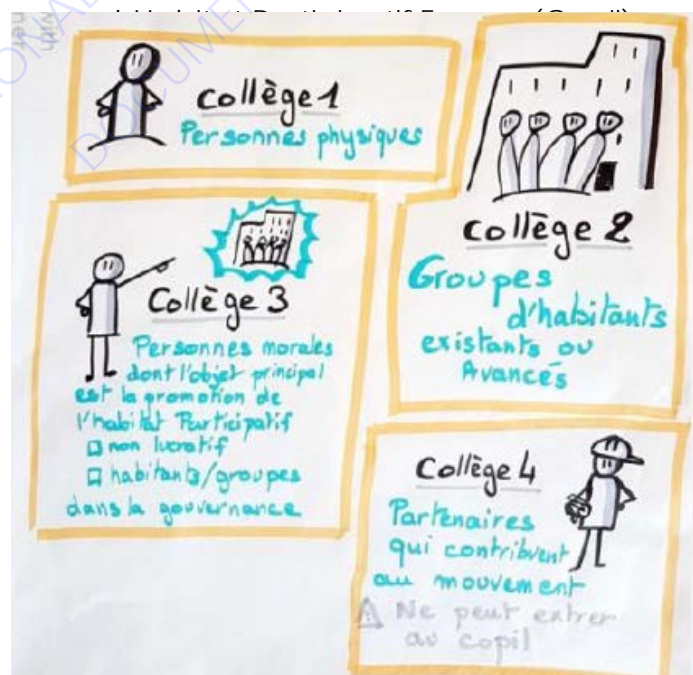 collège 1
Personnes physiques
collège 2
Groupes
d'habitants
existants ou
Avancés
Collège 3
Personnes morales
dont l'objet principal
est la promotion de
l'habitat Participatif
non lucratif
habitants/groupes
dans la gouvernance
Collège 4
Partenaires
qui contribuent
au mouvement
⚠ Ne peut entrer
au copil